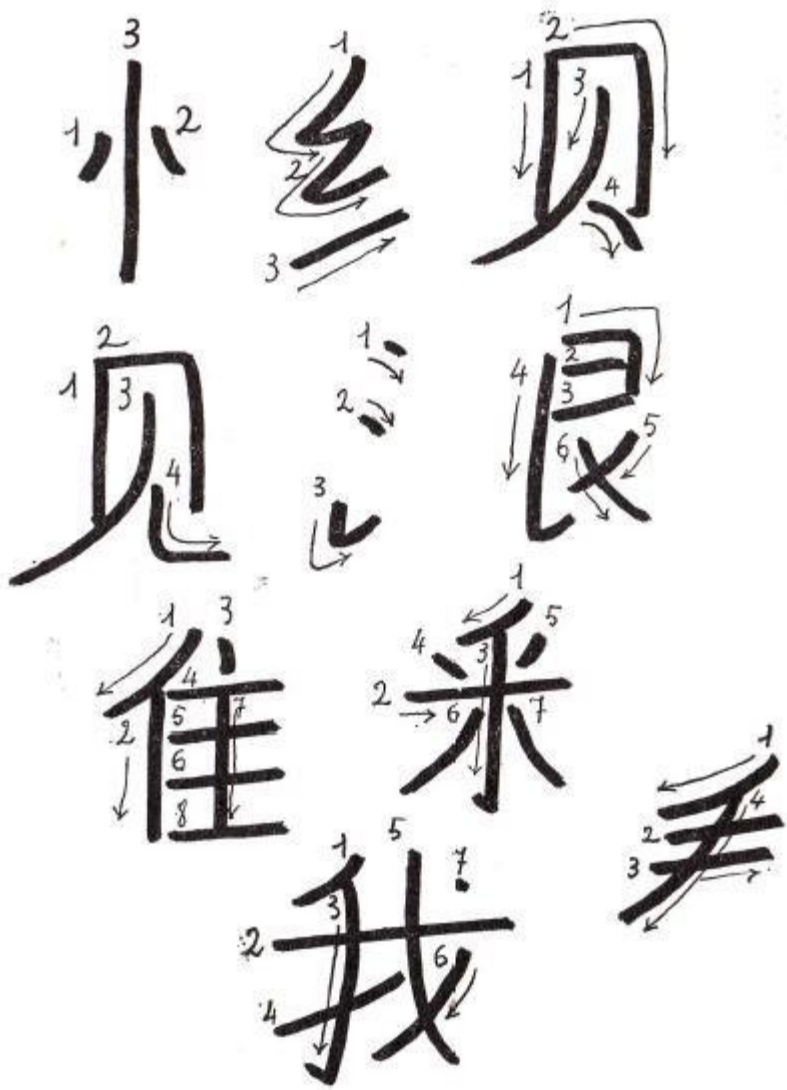 忄 1 2 3
纟 1 2 3
贝 1 2 3 4
见 1 2 3 4
氵 1 2 3
艮 1 2 3 4 5 6
隹 1 2 3 4 5 6 7 8
釆 1 2 3 4 5 6 7
龵 1 2 3 4
我 1 2 3 4 5 6 7